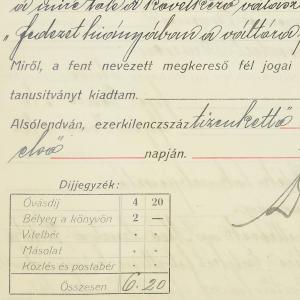 a mire tőle a következő válasz
„fedezet hiányában a váltóra
Miről, a fent nevezett megkereső fél jogai
tanusitványt kiadtam.
Alsólendván, ezerkilenczszáz tizenkettő
első napján.
Dijjegyzék:
Óvásdíj 4 20
Bélyeg a könyvön 2 —
Vitelbér · ·
Másolat · ·
Közlés és postabér · ·
Összesen 6·20